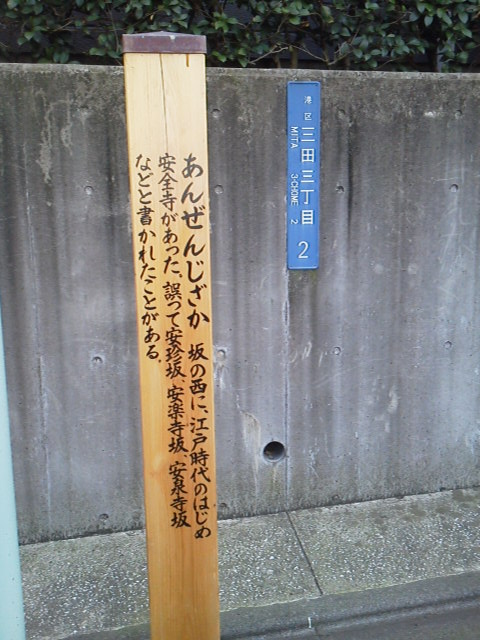 あんぜんじざか 坂の西に、江戸時代のはじめ
安全寺があった。誤って安珍坂、安楽寺坂、安泉寺坂
などと書かれたことがある。
港区
三田三丁目 2
MITA 3-CHOME 2